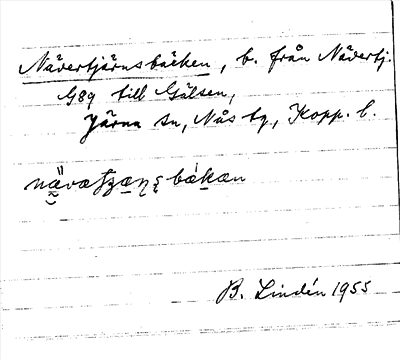 Nävertjärnsbäcken, b. från Nävertj.
G89 till Gälsen,
Järna sn, Nås tg, Kopp. l.
B. Lindén 1955